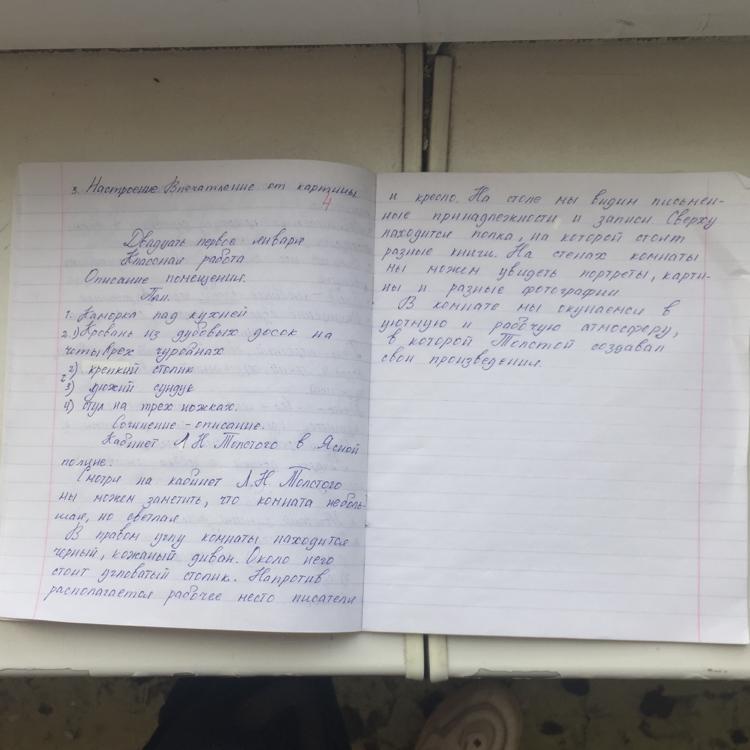 3. Настроение Впечатление от картины
4
Двадцать первое января
Классная работа
Описание помещения.
План.
1. Каморка над кухней
2. 1) Кровать из дубовых досок на
четырёх чурбанах
2) крепкий столик
3) дюжий сундук
4) стул на трех ножках.
Сочинение-описание.
Кабинет Л.Н. Толстого в Ясной
поляне.
Смотря на кабинет Л.Н. Толстого
мы можем заметить, что комната неболь-
шая, но светлая
В правом углу комнаты находится
черный, кожаный диван. Около него
стоит угловатый столик. Напротив
располагается рабочее место писателя
и кресло. На столе мы видим письмен-
ные принадлежности и записи. Сверху
находится полка, на которой стоят
разные книги. На стенах комнаты
мы можем увидеть портреты, карти-
ны и разные фотографии.
В комнате мы окунаемся в
уютную и рабочую атмосферу,
в которой Толстой создавал
свои произведения.